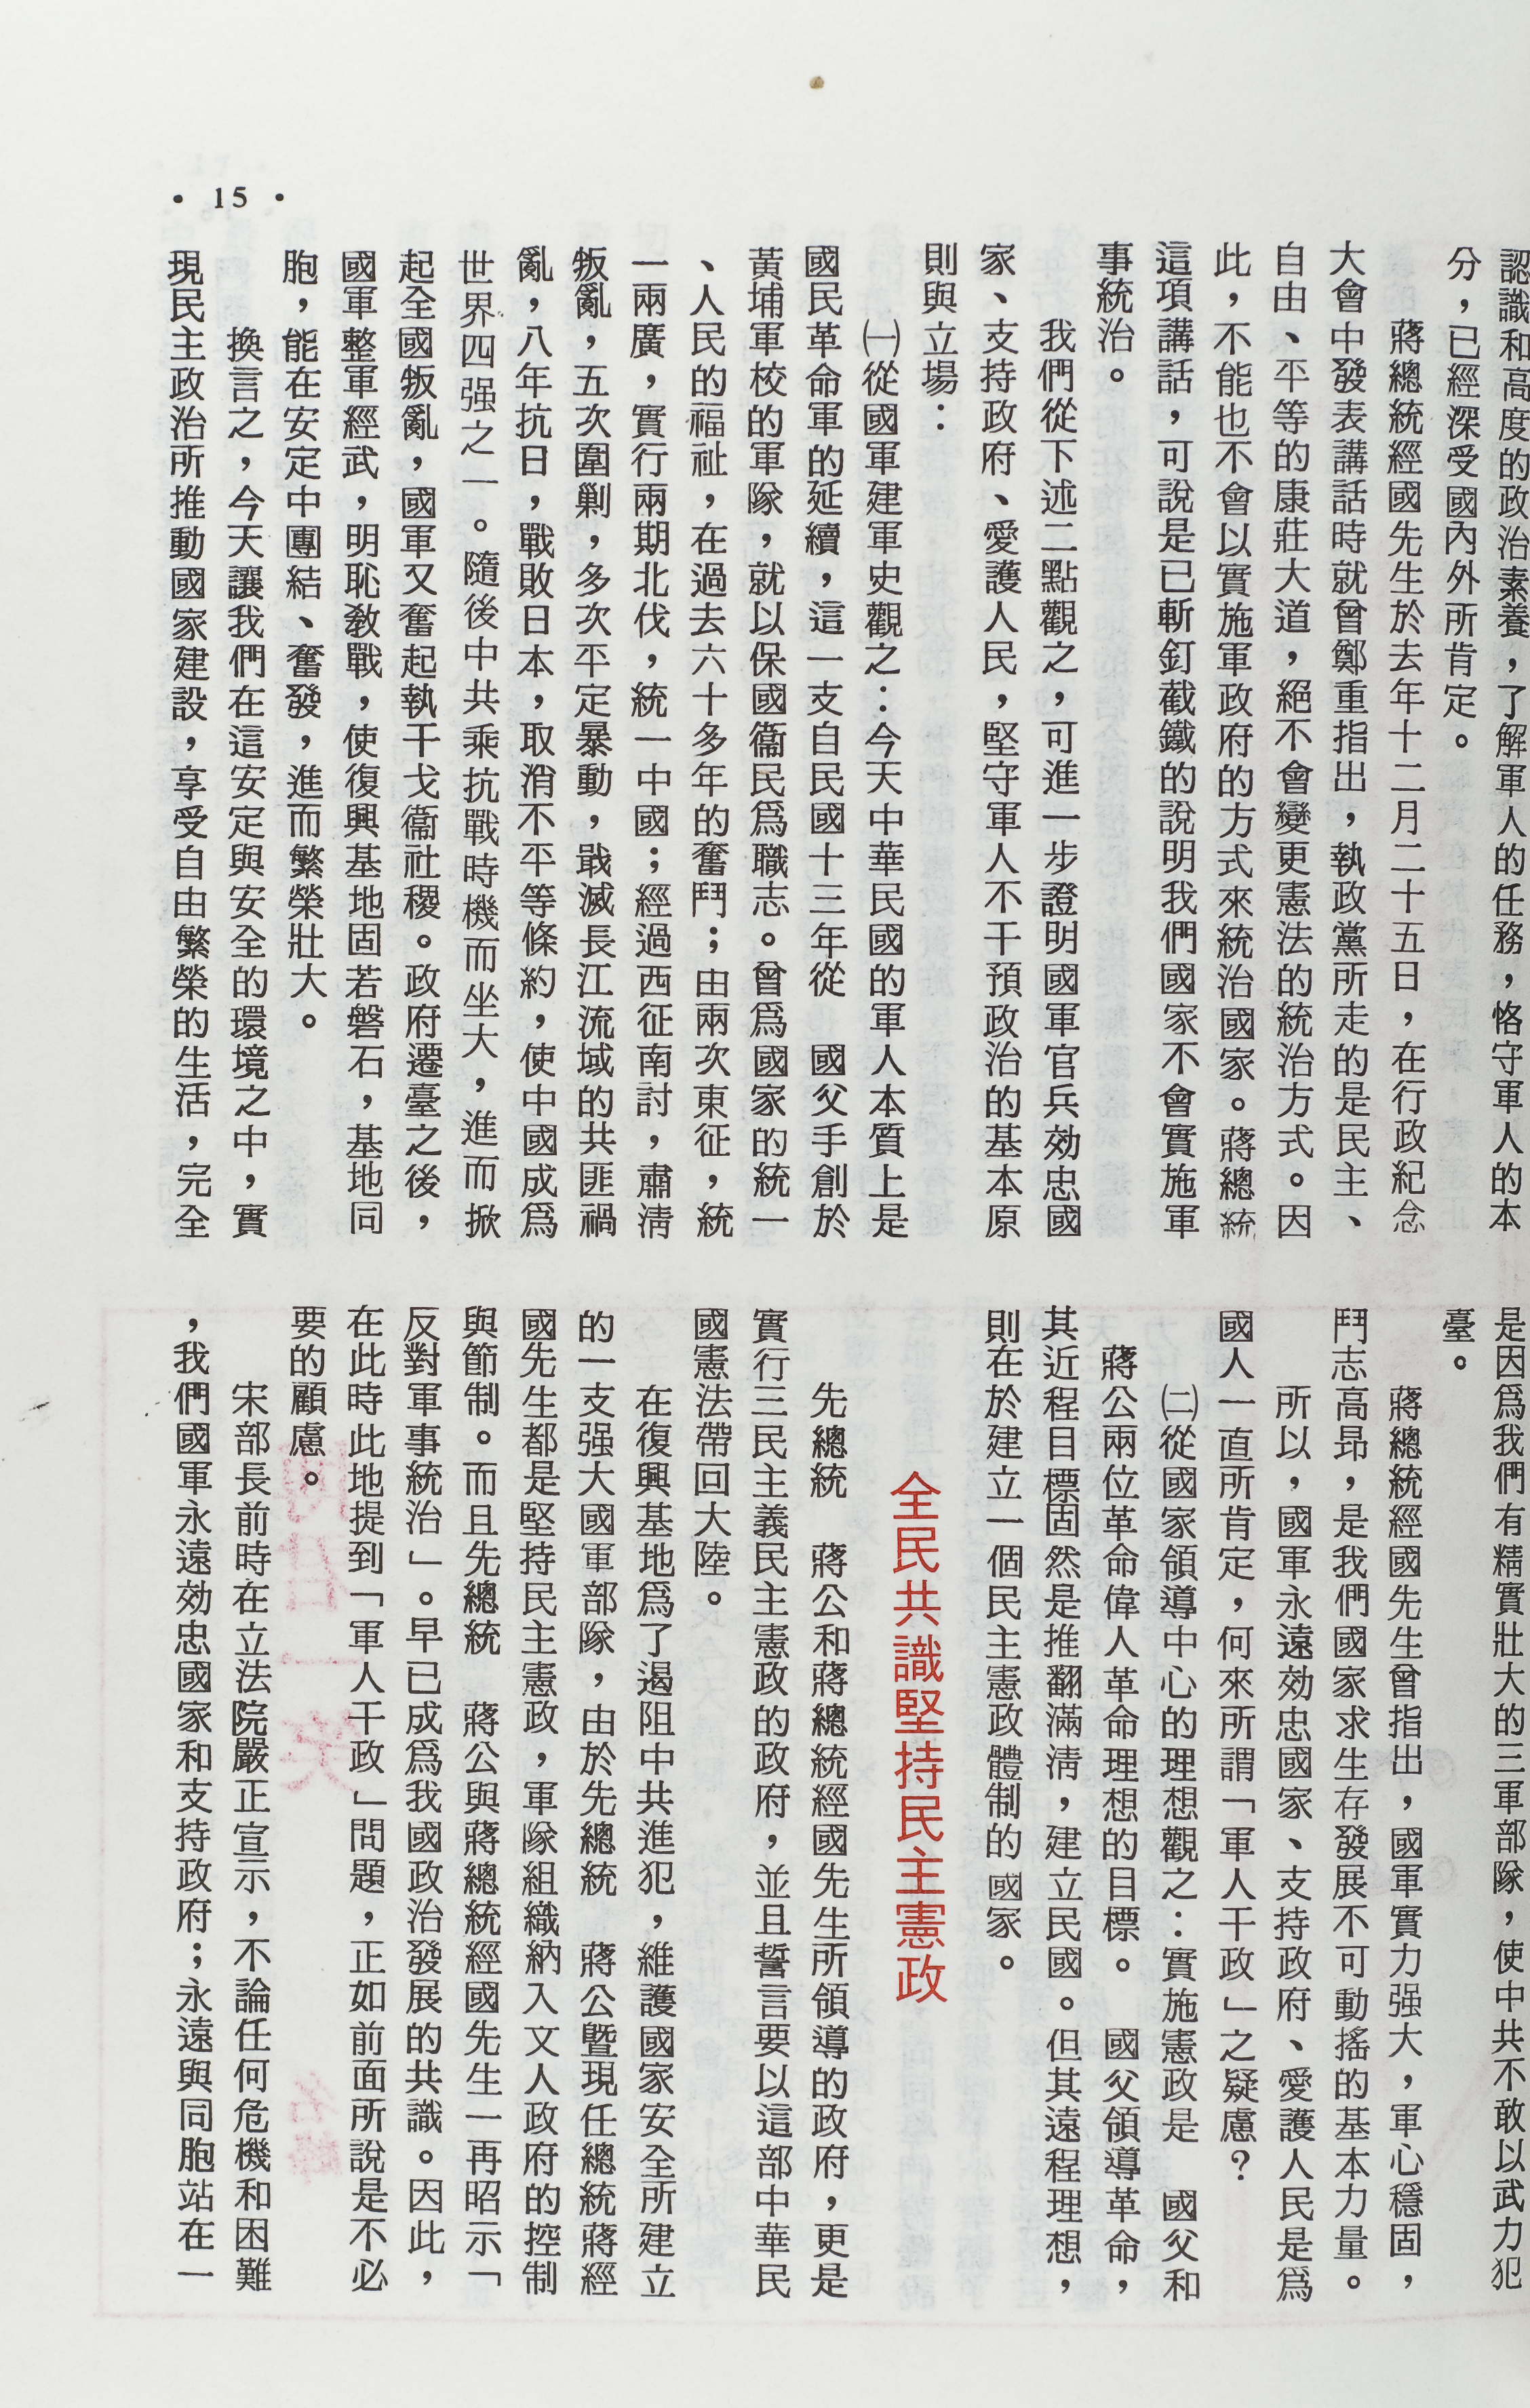 認識和高度的政治素養，了解軍人的任務，恪守軍人的本
分，已經深受國內外所肯定。
蔣總統經國先生於去年十二月二十五日，在行政紀念
大會中發表講話時就曾鄭重指出，執政黨所走的是民主、
自由、平等的康莊大道，絕不會變更憲法的統治方式。因
此，不能也不會以實施軍政府的方式來統治國家。蔣總統
這項講話，可說是已斬釘截鐵的說明我們國家不會實施軍
事統治。
我們從下述二點觀之，可進一步證明國軍官兵効忠國
家、支持政府、愛護人民，堅守軍人不干預政治的基本原
則與立場：
㈠從國軍建軍史觀之：今天中華民國的軍人本質上是
國民革命軍的延續，這一支自民國十三年從　國父手創於
黃埔軍校的軍隊，就以保國衞民爲職志。曾爲國家的統一
、人民的福祉，在過去六十多年的奮鬥；由兩次東征，統
一兩廣，實行兩期北伐，統一中國；經過西征南討，肅淸
叛亂，五次圍剿，多次平定暴動，戢滅長江流域的共匪禍
亂，八年抗日，戰敗日本，取消不平等條約，使中國成爲
世界四强之一。隨後中共乘抗戰時機而坐大，進而掀
起全國叛亂，國軍又奮起執干戈衞社稷。政府遷臺之後，
國軍整軍經武，明恥敎戰，使復興基地固若磐石，基地同
胞，能在安定中團結、奮發，進而繁榮壯大。
換言之，今天讓我們在這安定與安全的環境之中，實
現民主政治所推動國家建設，享受自由繁榮的生活，完全
是因爲我們有精實壯大的三軍部隊，使中共不敢以武力犯
臺。
蔣總統經國先生曾指出，國軍實力强大，軍心穩固，
鬥志高昂，是我們國家求生存發展不可動搖的基本力量。
所以，國軍永遠効忠國家、支持政府、愛護人民是爲
國人一直所肯定，何來所謂「軍人干政」之疑慮？
㈡從國家領導中心的理想觀之：實施憲政是　國父和
蔣公兩位革命偉人革命理想的目標。　國父領導革命，
其近程目標固然是推翻滿淸，建立民國。但其遠程理想，
則在於建立一個民主憲政體制的國家。
全民共識堅持民主憲政
先總統　蔣公和蔣總統經國先生所領導的政府，更是
實行三民主義民主憲政的政府，並且誓言要以這部中華民
國憲法帶回大陸。
在復興基地爲了遏阻中共進犯，維護國家安全所建立
的一支强大國軍部隊，由於先總統　蔣公暨現任總統蔣經
國先生都是堅持民主憲政，軍隊組織納入文人政府的控制
與節制。而且先總統　蔣公與蔣總統經國先生一再昭示「
反對軍事統治」。早已成爲我國政治發展的共識。因此，
在此時此地提到「軍人干政」問題，正如前面所說是不必
要的顧慮。
宋部長前時在立法院嚴正宣示，不論任何危機和困難
，我們國軍永遠効忠國家和支持政府；永遠與同胞站在一
• 15 •